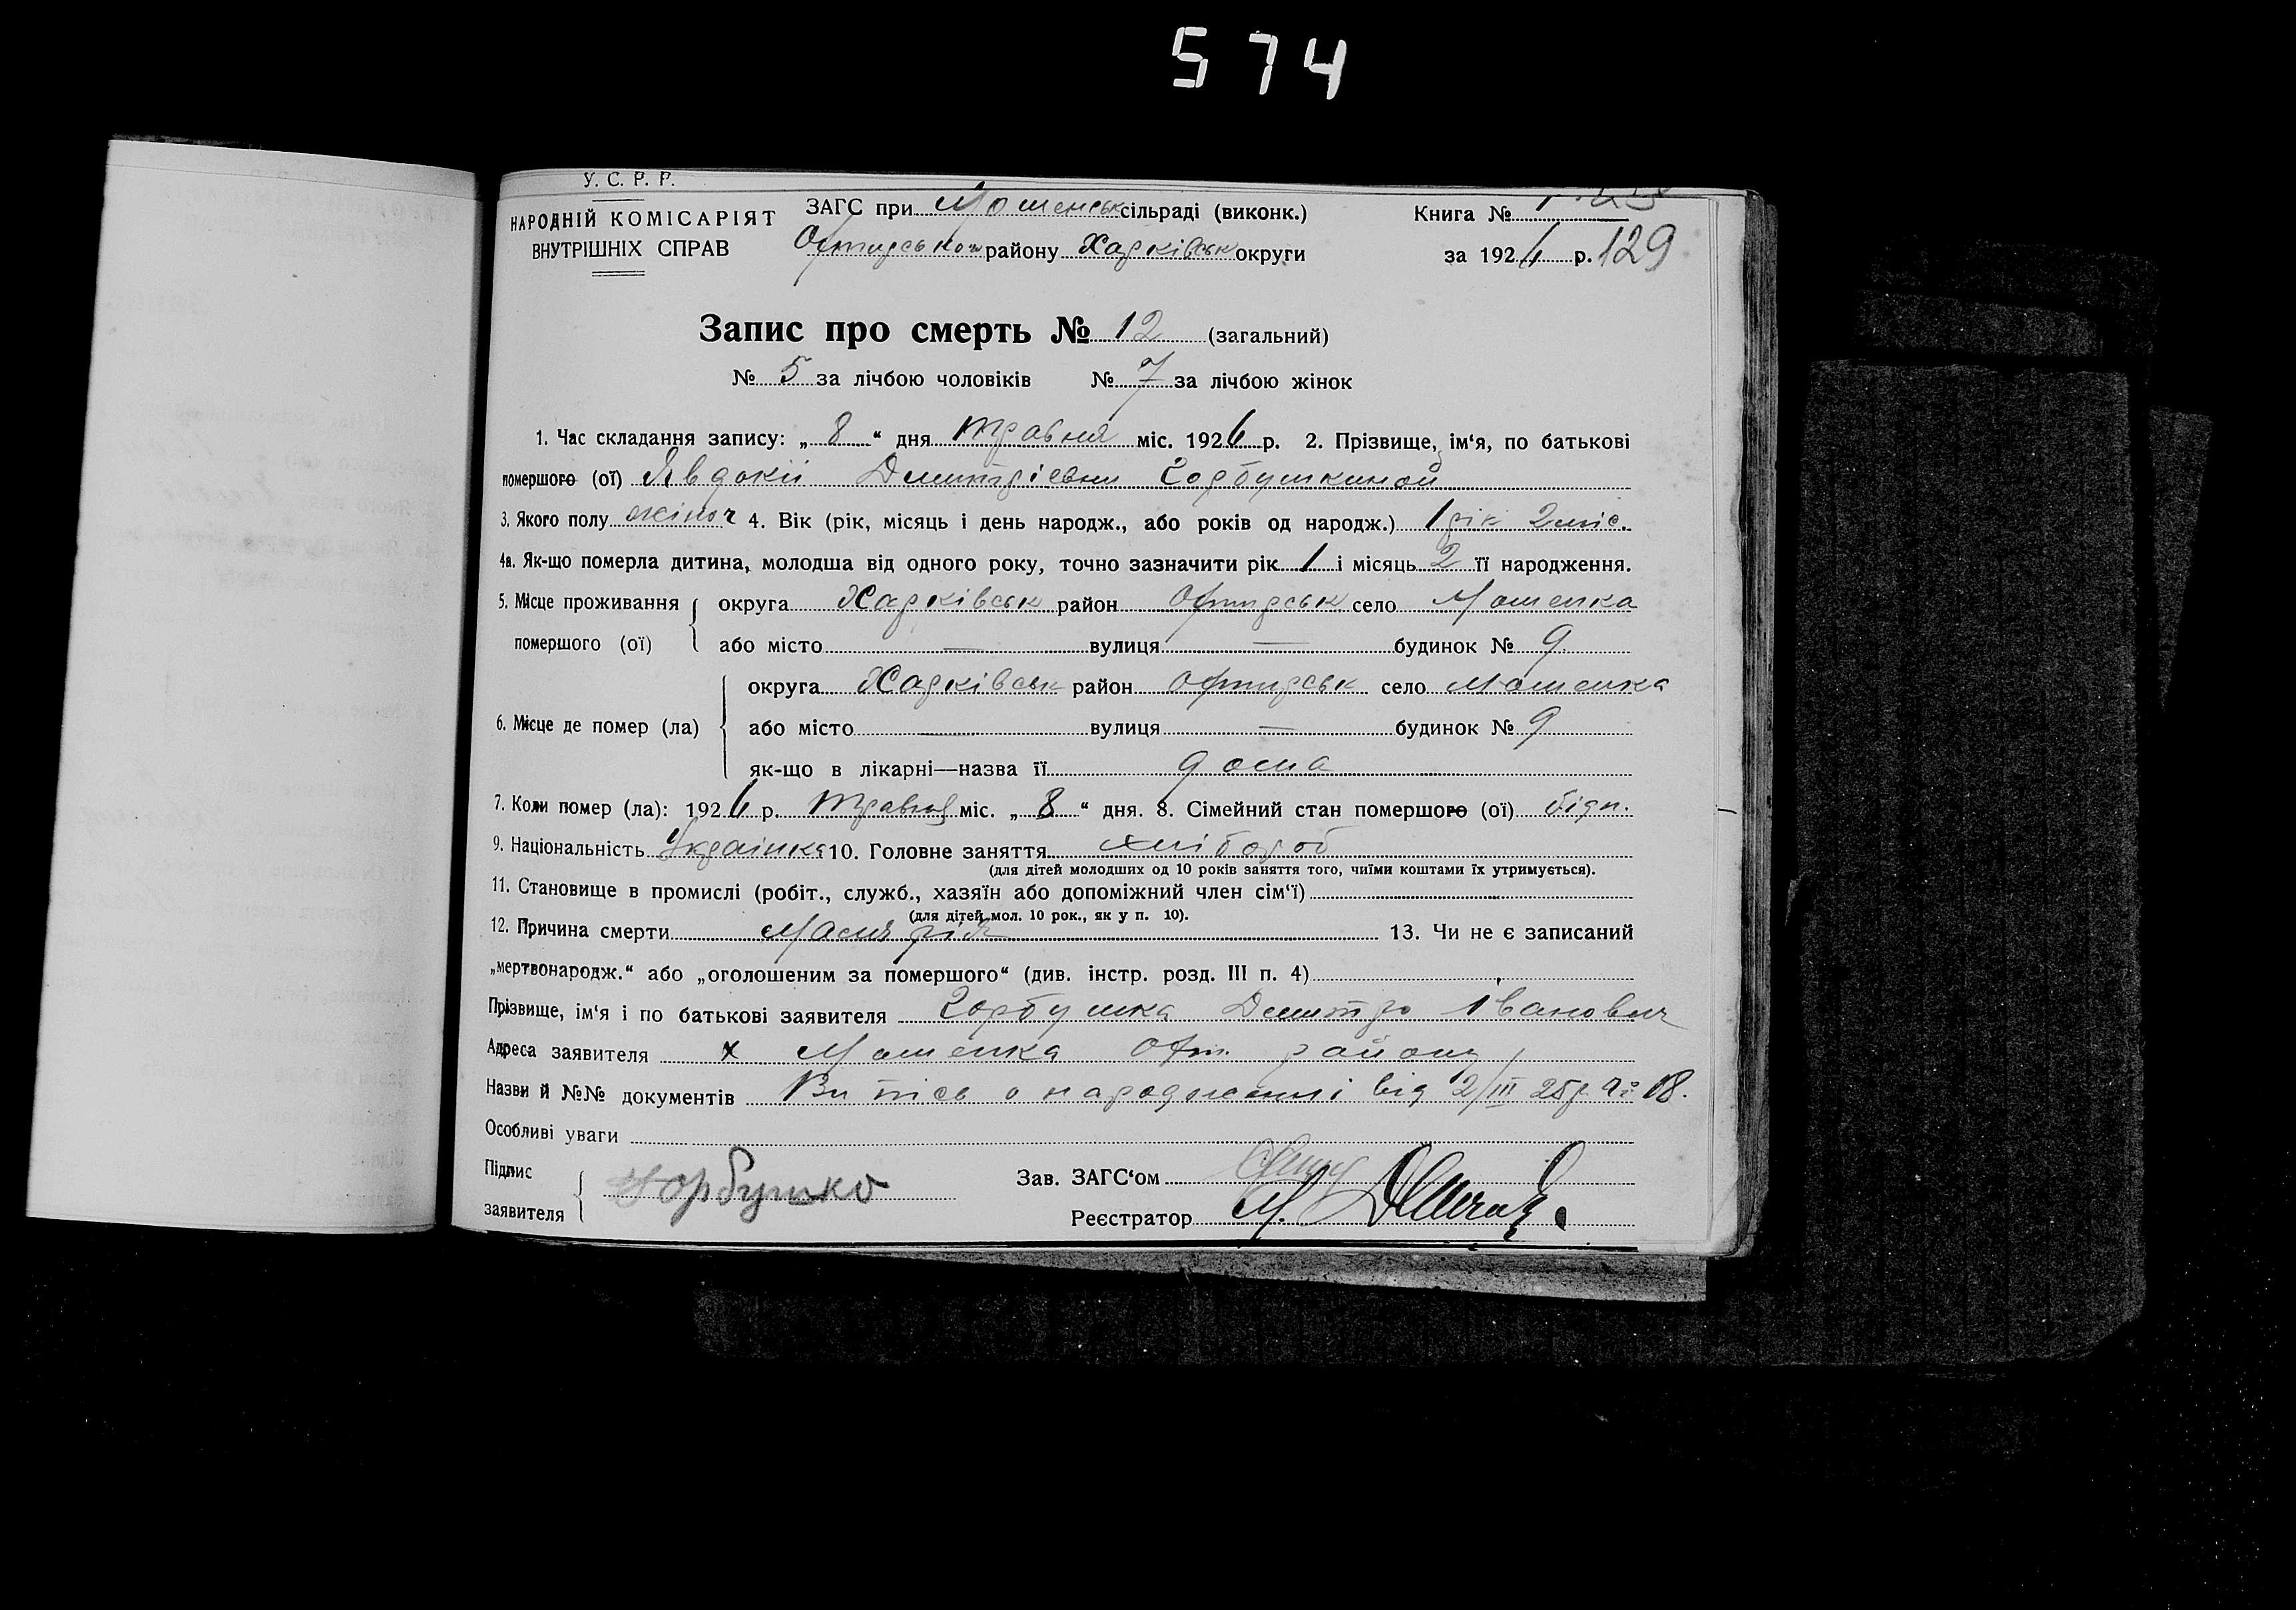 574
У. С. Р. Р.
НАРОДНІЙ КОМІСАРІЯТ
ВНУТРІШНІХ СПРАВ
ЗАГС при Мошенськ сільраді (виконк.)
району Харківськ округи
Книга №
за 1926 р. 129
Запис про смерть № 12 (загальний)
№ 5 за лічбою чоловіків № 7 за лічбою жінок
1. Час складання запису: „ 8 “ дня травня міс. 1926 р. 2. Прізвище, ім‘я, по батькові
помершого (ої) Явдокії Дмитрієвни Горбушкиной
3. Якого полу жіноч 4. Вік (рік, місяць і день народж., або років од народж.) 1 рік 2 міс.
4а. Як-що померла дитина, молодша від одного року, точно зазначити рік 1 і місяць 2 її народження.
5. Місце проживання помершого (ої)
округа Харківськ район село Мошенка
або місто — вулиця — будинок № 9
6. Місце де помер (ла)
округа Харківськ район село Мошенка
або місто — вулиця — будинок № 9
як-що в лікарні—назва її дома
7. Коли помер (ла): 1926 р. травня міс. „ 8 “ дня. 8. Сімейний стан помершого (ої) бідн.
9. Національність Українка 10. Головне заняття хлібороб
(для дітей молодших од 10 років заняття того, чиїми коштами їх утримується).
11. Становище в промислі (робіт., служб., хазяїн або допоміжний член сім‘ї)
(для дітей мол. 10 рок., як у п. 10).
12. Причина смерти 13. Чи не є записаний
„мертвонародж.“ або „оголошеним за помершого“ (див. інстр. розд. III п. 4)
Прізвище, ім‘я і по батькові заявителя Горбушка Дмитро Іванович
Адреса заявителя х Мошенка району
Назви й №№ документів Випись о народженні від 2/III 25 р. № 18.
Особливі уваги
Підпис заявителя Горбушко
Зав. ЗАГС‘ом
Реєстратор